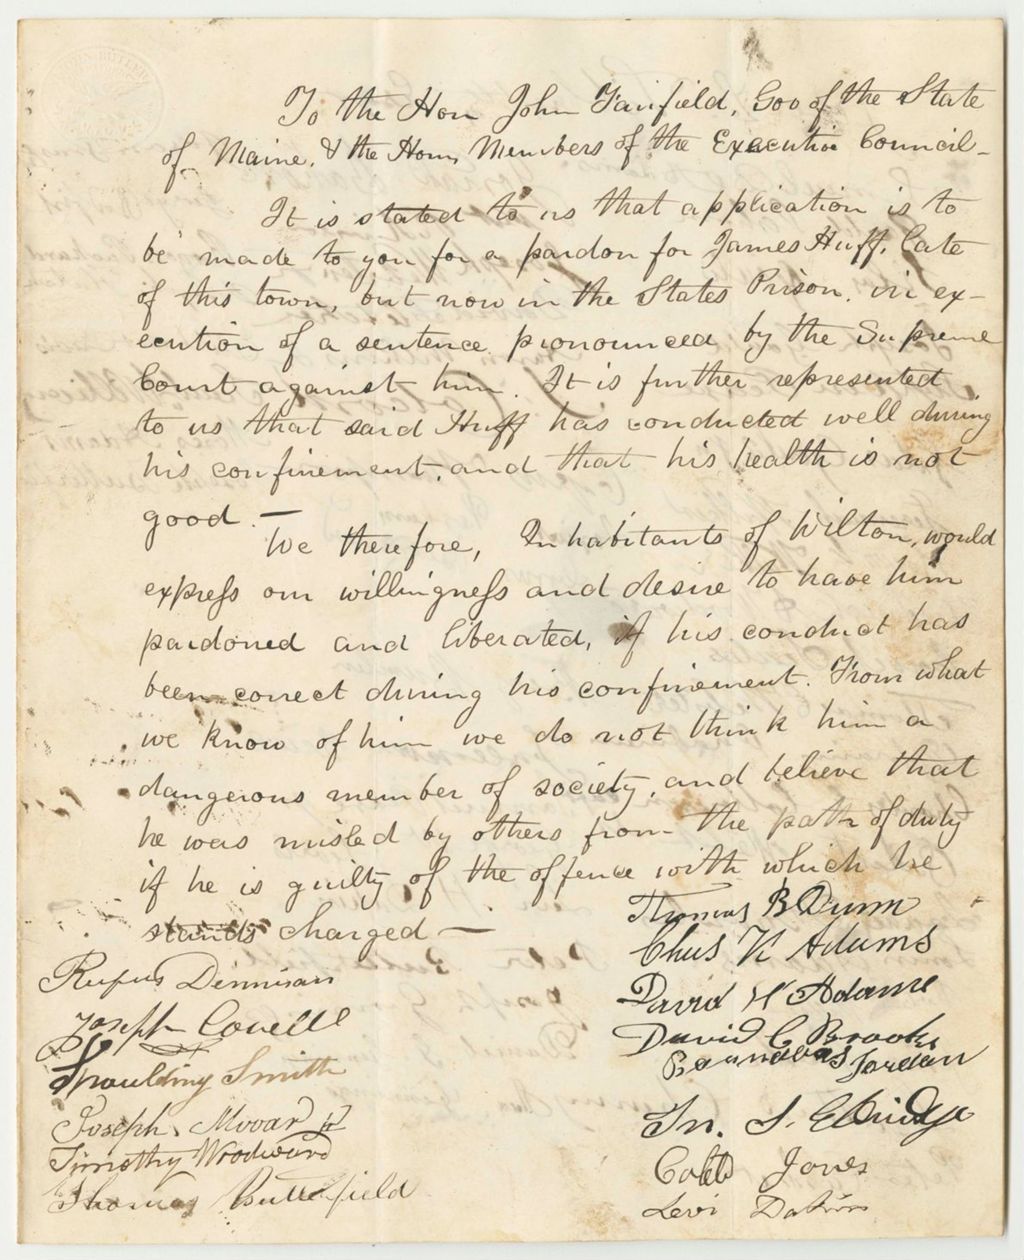 To the Hon John Fairfield, Gov of the State
of Maine, & the Hon, Members of the Executive Council-
It is stated to us that application is to
be made to you for a pardon for James Huff, late
of this town, but now in the States Prison, in ex-
ecution of a sentence pronounced by the Supreme
Court against him. It is further represented
to us that said Huff has conducted well during
his confinement, and that his health is not
good. —
We therefore, Inhabitants of Wilton, would
express our willingness and desire to have him
pardoned and liberated, if his conduct has
been correct during his confinement. From what
we know of him we do not think him a
dangerous member of society, and believe that
he was misled by others from the path of duty
if he is guilty of the offence with which he
stands charged —
Rufus Dennison
Joseph Covelle
Spoulding Smith
Joseph Mooar Jr
Timothy Woodward
Thomas Butterfield
Thomas B Dunn
Chas K Adams
David W Adams
David C Brooks
Jordan
Jn. S. Eldridge
Caleb Jones
Levi